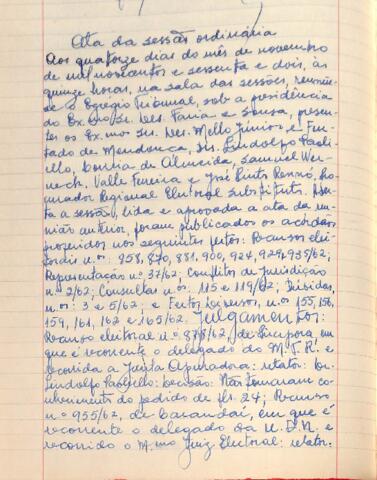 Ata da sessão ordinária
Aos quatorze dias do mês de novembro
de mil novecentos e sessenta e dois, às
quinze horas, na sala das sessões, reuniu-
se o Egregio Tribunal, sob a presidência
do Ex.mo Sr. Des. Faria e Sousa, presen-
tes os Ex.mos Srs. Des. Mello Júnior e Fur-
tado de Mendonça, Drs. Lindolfo Paoli-
ello, Corrêa de Almeida, Samuel Wer-
neck, Valle Ferreira e José Pinto Rennó, Pro-
curador Regional Eleitoral Substituto. Aber-
ta a sessão, lida e aprovada a ata da reu-
nião anterior, foram publicados os acordãos
proferidos nos seguintes feitos: Recursos elei-
torais n.os 858, 870, 881, 900, 924, 929, 935/62;
Representação n.o 37/62; Conflitos de Jurisdição
n.o 2/62; Consultas n.os: 115 e 119/62;
n.os: 3 e 5/62; e Feitos Diversos, n.os 155, 156,
159, 161, 162 e 165/62. Julgamentos:
Recurso eleitoral n.o 878/62, de em
que é recorrente o delegado do M.T.R. e
recorrida a Junta Apuradora: relator: Dr.
Lindolfo Paoliello: decisão: Não tomaram co-
nhecimento do pedido de fls. 24; Recurso
n.o 955/62, de Carandaí, em que é
recorrente o delegado da U.D.N. e
recorrido o M.mo Juiz Eleitoral: relator: